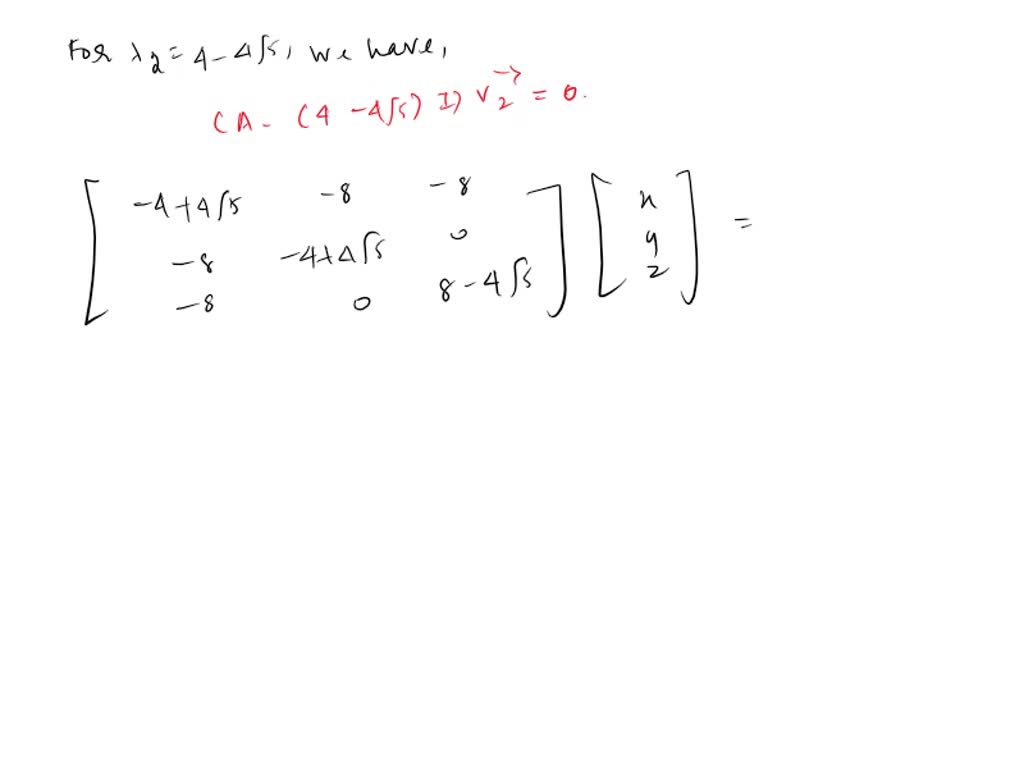 For λ₂ = 4 - 4√5, we have,
(A - (4 - 4√5) I) v₂→ = 0.
[ -4+4√5 -8 -8 ] [ x ] =
[ -8 -4+4√5 0 ] [ y ]
[ -8 0 8-4√5 ] [ z ]